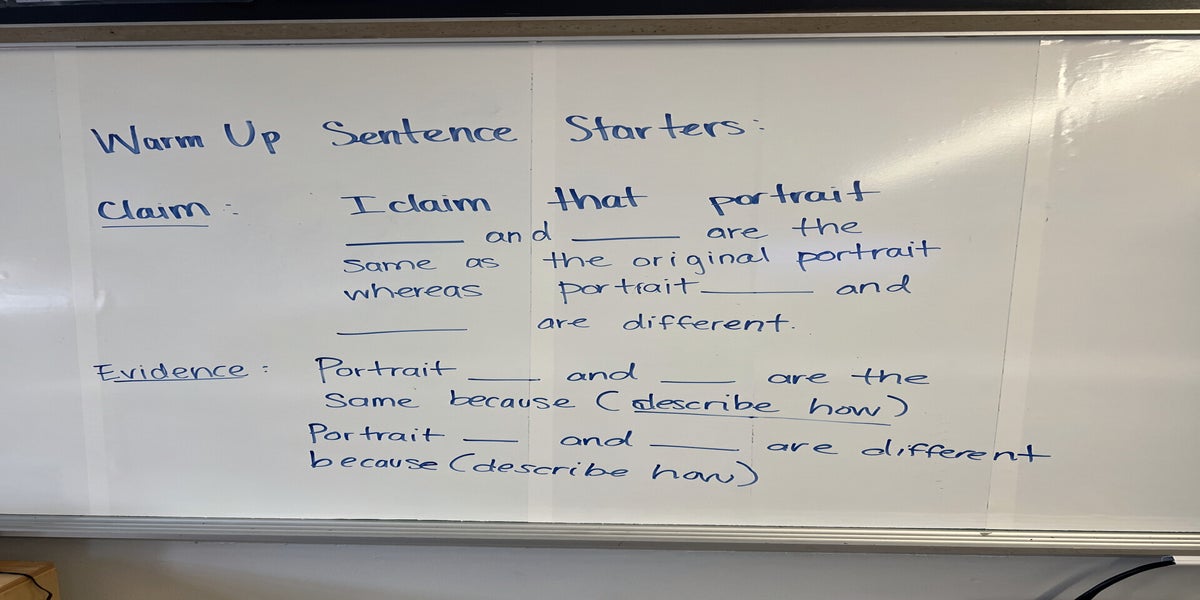 Warm Up Sentence Starters:
Claim: I claim that portrait
______ and ______ are the
same as the original portrait
whereas portrait ______ and
______ are different.
Evidence: Portrait ____ and ____ are the
same because (describe how)
Portrait ____ and ____ are different
because (describe how)